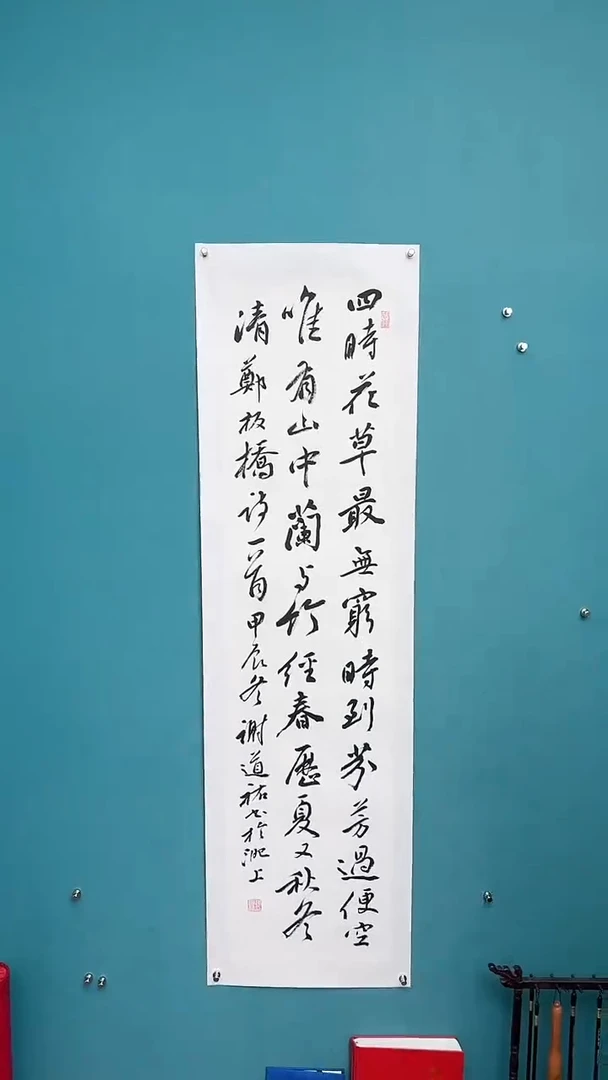 四時花草最無窮時到芬芳過便空
唯有山中蘭与竹經春歷夏又秋冬
清鄭板橋詩一首甲辰冬謝道祐书於淝上